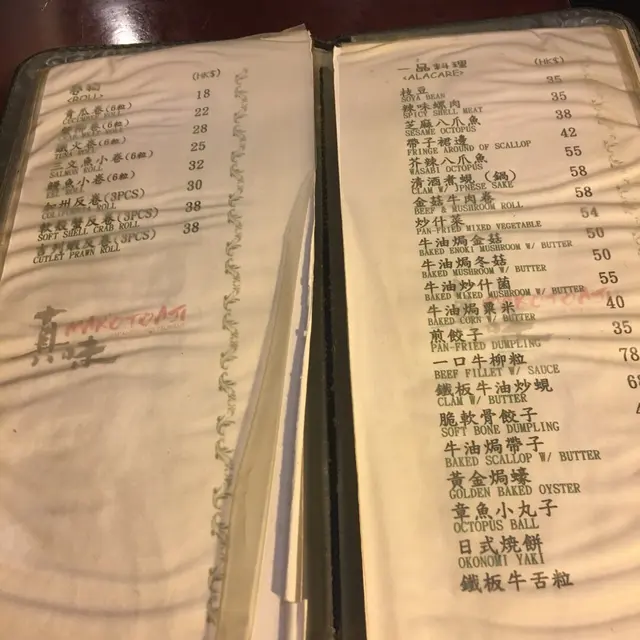 卷物 (HK$)
<ROLL>
青瓜卷(6粒) 18
22
鐵火卷(6粒) 28
三文魚小卷(6粒) 25
SALMON ROLL
鰻魚小卷(6粒) 32
加州反卷(3PCS) 30
軟殼蟹反卷(3PCS) 38
SOFT SHELL CRAB ROLL
吉列蝦反卷(3PCS) 38
CUTLET PRAWN ROLL
真味
一品料理 (HK$)
<ALACARE>
枝豆 35
SOYA BEAN
辣味螺肉 35
SPICY SHELL MEAT
芝麻八爪魚 38
SESAME OCTOPUS
帶子裙邊 42
FRINGE AROUND OF SCALLOP
芥辣八爪魚 55
WASABI OCTOPUS
清酒煮蜆 (鍋) 58
CLAM W/ JPNESE SAKE
金菇牛肉卷 58
BEEF & MUSHROOM ROLL
炒什菜 54
PAN-FRIED MIXED VEGETABLE
牛油焗金菇 50
BAKED ENOKI MUSHROOM W/ BUTTER
牛油焗冬菇 50
BAKED MUSHROOM W/ BUTTER
牛油炒什菌 55
BAKED MIXED MUSHROOM W/ BUTTER
牛油焗粟米 40
BAKED CORN W/ BUTTER
煎餃子 35
PAN-FRIED DUMPLING
一口牛柳粒 78
BEEF FILLET W/ SAUCE
鐵板牛油炒蜆
CLAM W/ BUTTER
脆軟骨餃子
SOFT BONE DUMPLING
牛油焗帶子
BAKED SCALLOP W/ BUTTER
黃金焗蠔
GOLDEN BAKED OYSTER
章魚小丸子
OCTOPUS BALL
日式燒餅
OKONOMI YAKI
鐵板牛舌粒